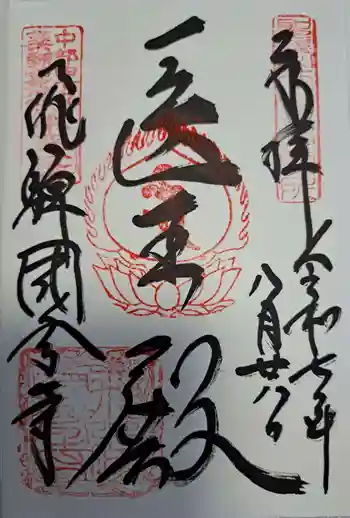 奉拝
令和七年
八月廿八日
医王殿
飛騨國分寺
中部
薬師